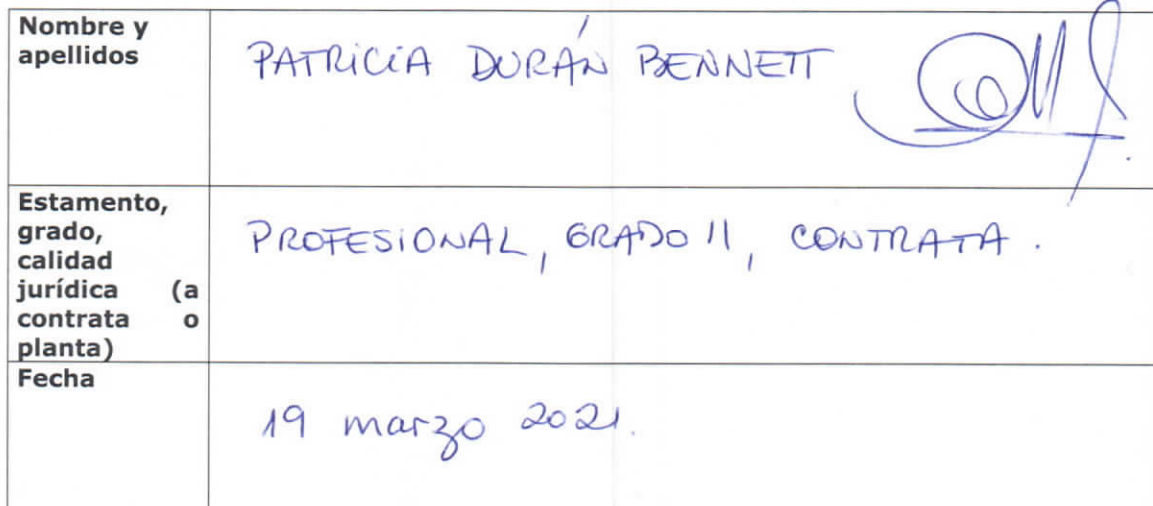 Nombre y
apellidos
PATRICIA DURÁN BENNETT
Estamento,
grado,
calidad
jurídica (a
contrata o
planta)
PROFESIONAL, GRADO 11, CONTRATA.
Fecha
19 marzo 2021.